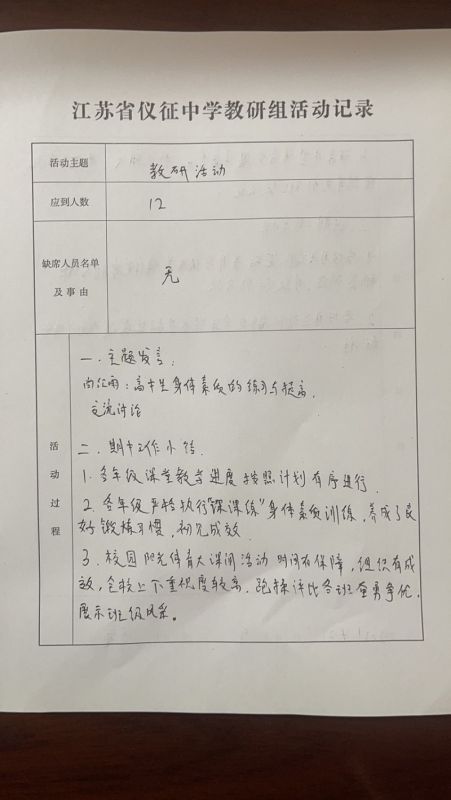 江苏省仪征中学教研组活动记录
活动主题
教研活动
应到人数
12
缺席人员名单
及事由
无
活动过程
一．主题发言：
：高中生身体素质的练习与提高．
交流讨论
二．期中工作小结．
1．各年级课堂教学进度按照计划有序进行
2．各年级严格执行“课课练”身体素质训练，养成了良
好锻炼习惯，初见成效．
3．校园阳光体育大课间活动时间有保障，组织有成
效，全校上下重视度较高．跑操评比各班奋勇争优，
展示班级风采。